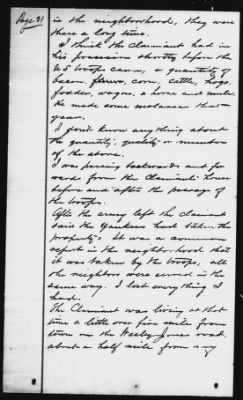 Page 31
in the neighborhood, they were
there a long time.
I think the Claimant had in
his possession shortly before the
U.S. troops came, a quantity of
bacon, flour, corn, cattle, hogs,
fodder, wagon, a horse and mule.
He made some molasses that
year.
I don't know anything about
the quantity, quality or number
of the above.
I was passing backwards and for
wards from the Claimants house
before and after the passage of
the troops.
After the army left the claimant
said the Yankees had taken the
property. It was a common
report in the neighborhood that
it was taken by the troops, all
the neighbors were served in the
same way. I lost everything I
had.
The Claimant was living at that
time a little over five miles from
town on the Jones road
about a half mile from any